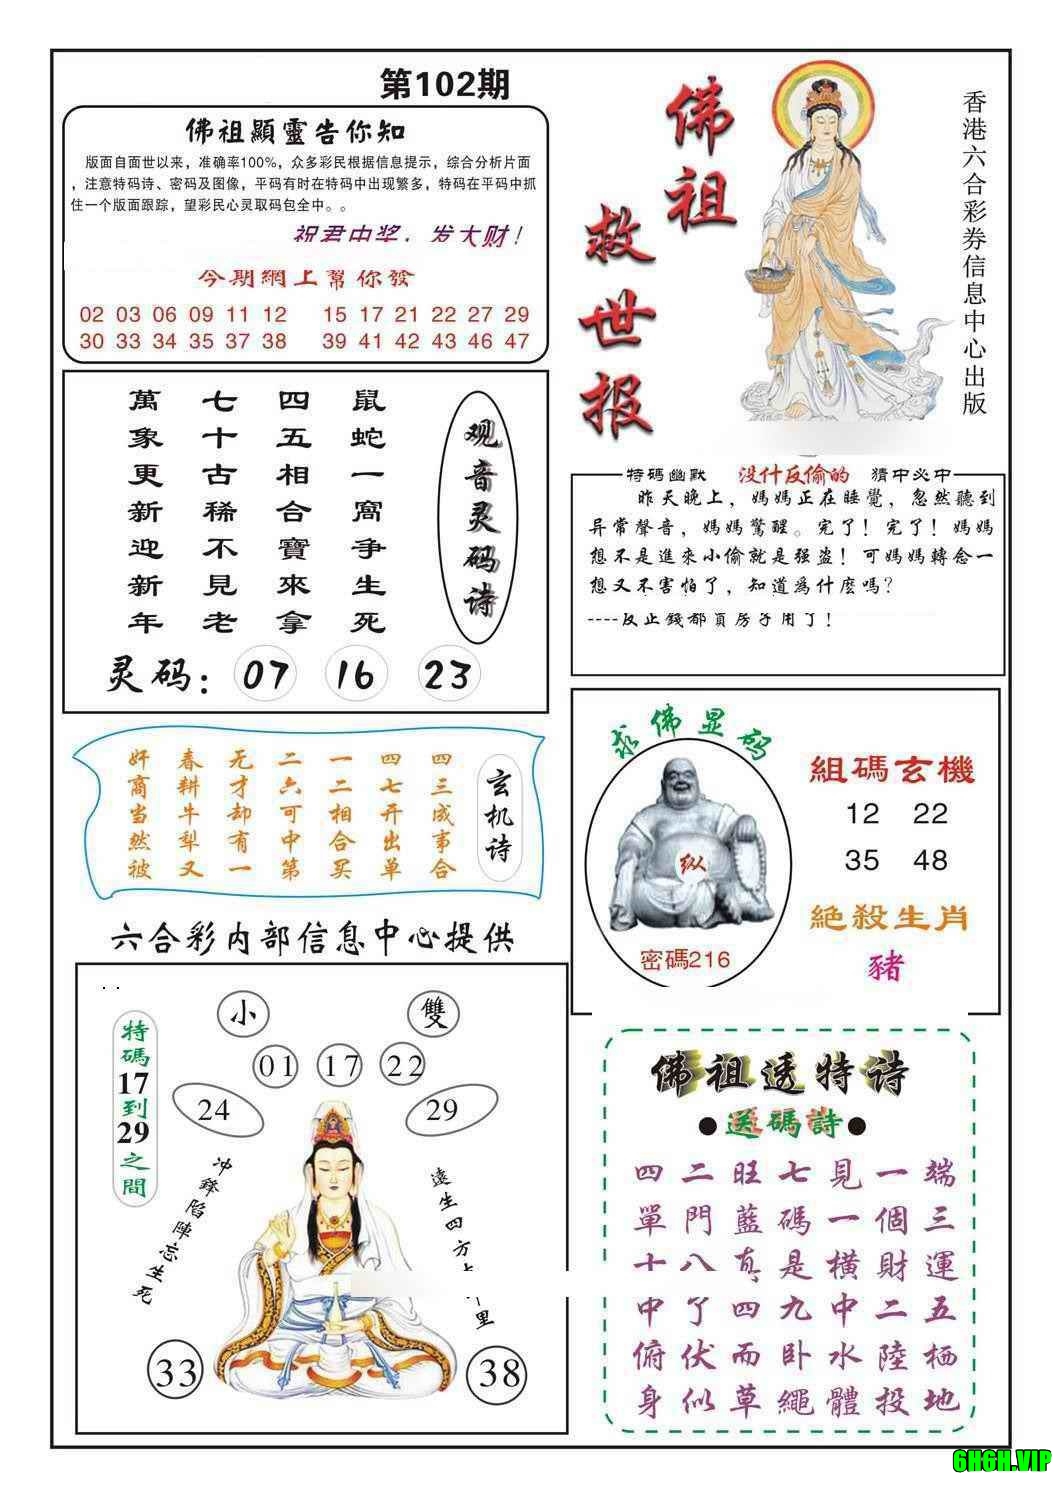 第102期
佛祖顯靈告你知
版面自面世以来，准确率100%，众多彩民根据信息提示，综合分析片面
，注意特码诗、密码及图像，平码有时在特码中出现繁多，特码在平码中抓
住一个版面跟踪，望彩民心灵取码包全中。。
祝君中奖，发大财！
今期網上幫你發
02 03 06 09 11 12 15 17 21 22 27 29
30 33 34 35 37 38 39 41 42 43 46 47
佛祖
救世报
香港六合彩券信息中心出版
观音灵码诗
鼠蛇一窩争生死
四五相合寶來拿
七十古稀不見老
萬象更新迎新年
灵码：07 16 23
特碼幽默 没什反偷的 猜中必中
昨天晚上，媽媽正在睡覺，忽然聽到
异常聲音，媽媽驚醒。完了！完了！媽媽
想不是進來小偷就是强盗！可媽媽轉念一
想又不害怕了，知道爲什麽嗎？
----反正錢都買房子用了！
玄机诗
四三成事合
四七开出单
一二相合买
二六可中第
无才却有一
春耕牛犁又
奸商当然被
求佛显码
纵
密碼216
組碼玄機
12 22
35 48
絶殺生肖
豬
六合彩内部信息中心提供
特碼17到29之間
小 雙
01 17 22
24 29
冲鋒陷陣忘生死
遠生四方
里
33 38
佛祖透特诗
●送碼詩●
端三運五栖地
一個財二陸投
見一横中水體
七碼是九卧繩
旺藍真四而草
二門八了伏似
四單十中俯身
6H6H.VIP